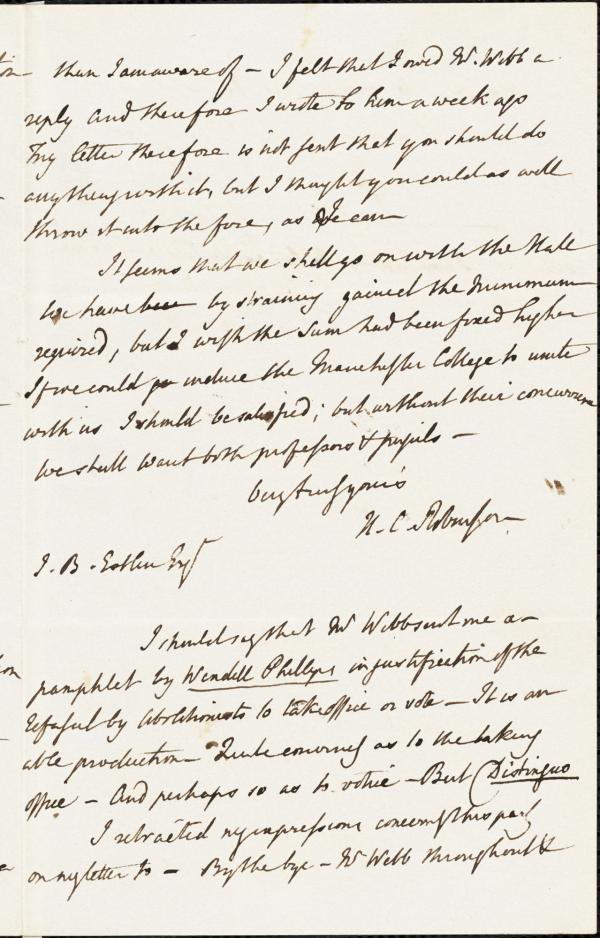 than I am aware of – I felt that I owed Mr. Webb a
reply and therefore I wrote to him a week ago
My letter therefore is not sent that you should do
anything with it, but I thought you could as well
throw it into the fire, as I can
It seems that we shall go on with the Hall
We have by straining gained the minimum
required, but I wish the sum had been fixed higher
If we could induce the Manchester College to unite
with us I should be satisfied; but without their concurrence
we shall want both professors & pupils –
Very truly yours
H. C. Robinson
J. B. Estlin Esqr
I should say that Mr Webb sent me a
pamphlet by Wendell Phillips in justification of the
refusal by Abolitionists to take office or vote – It is an
able production – Quite convincing as to the taking
office – And perhaps so as to voting – But (Distinguo
I retracted my impressions concerning this part
on my letter to – By the bye – Mr Webb throughout